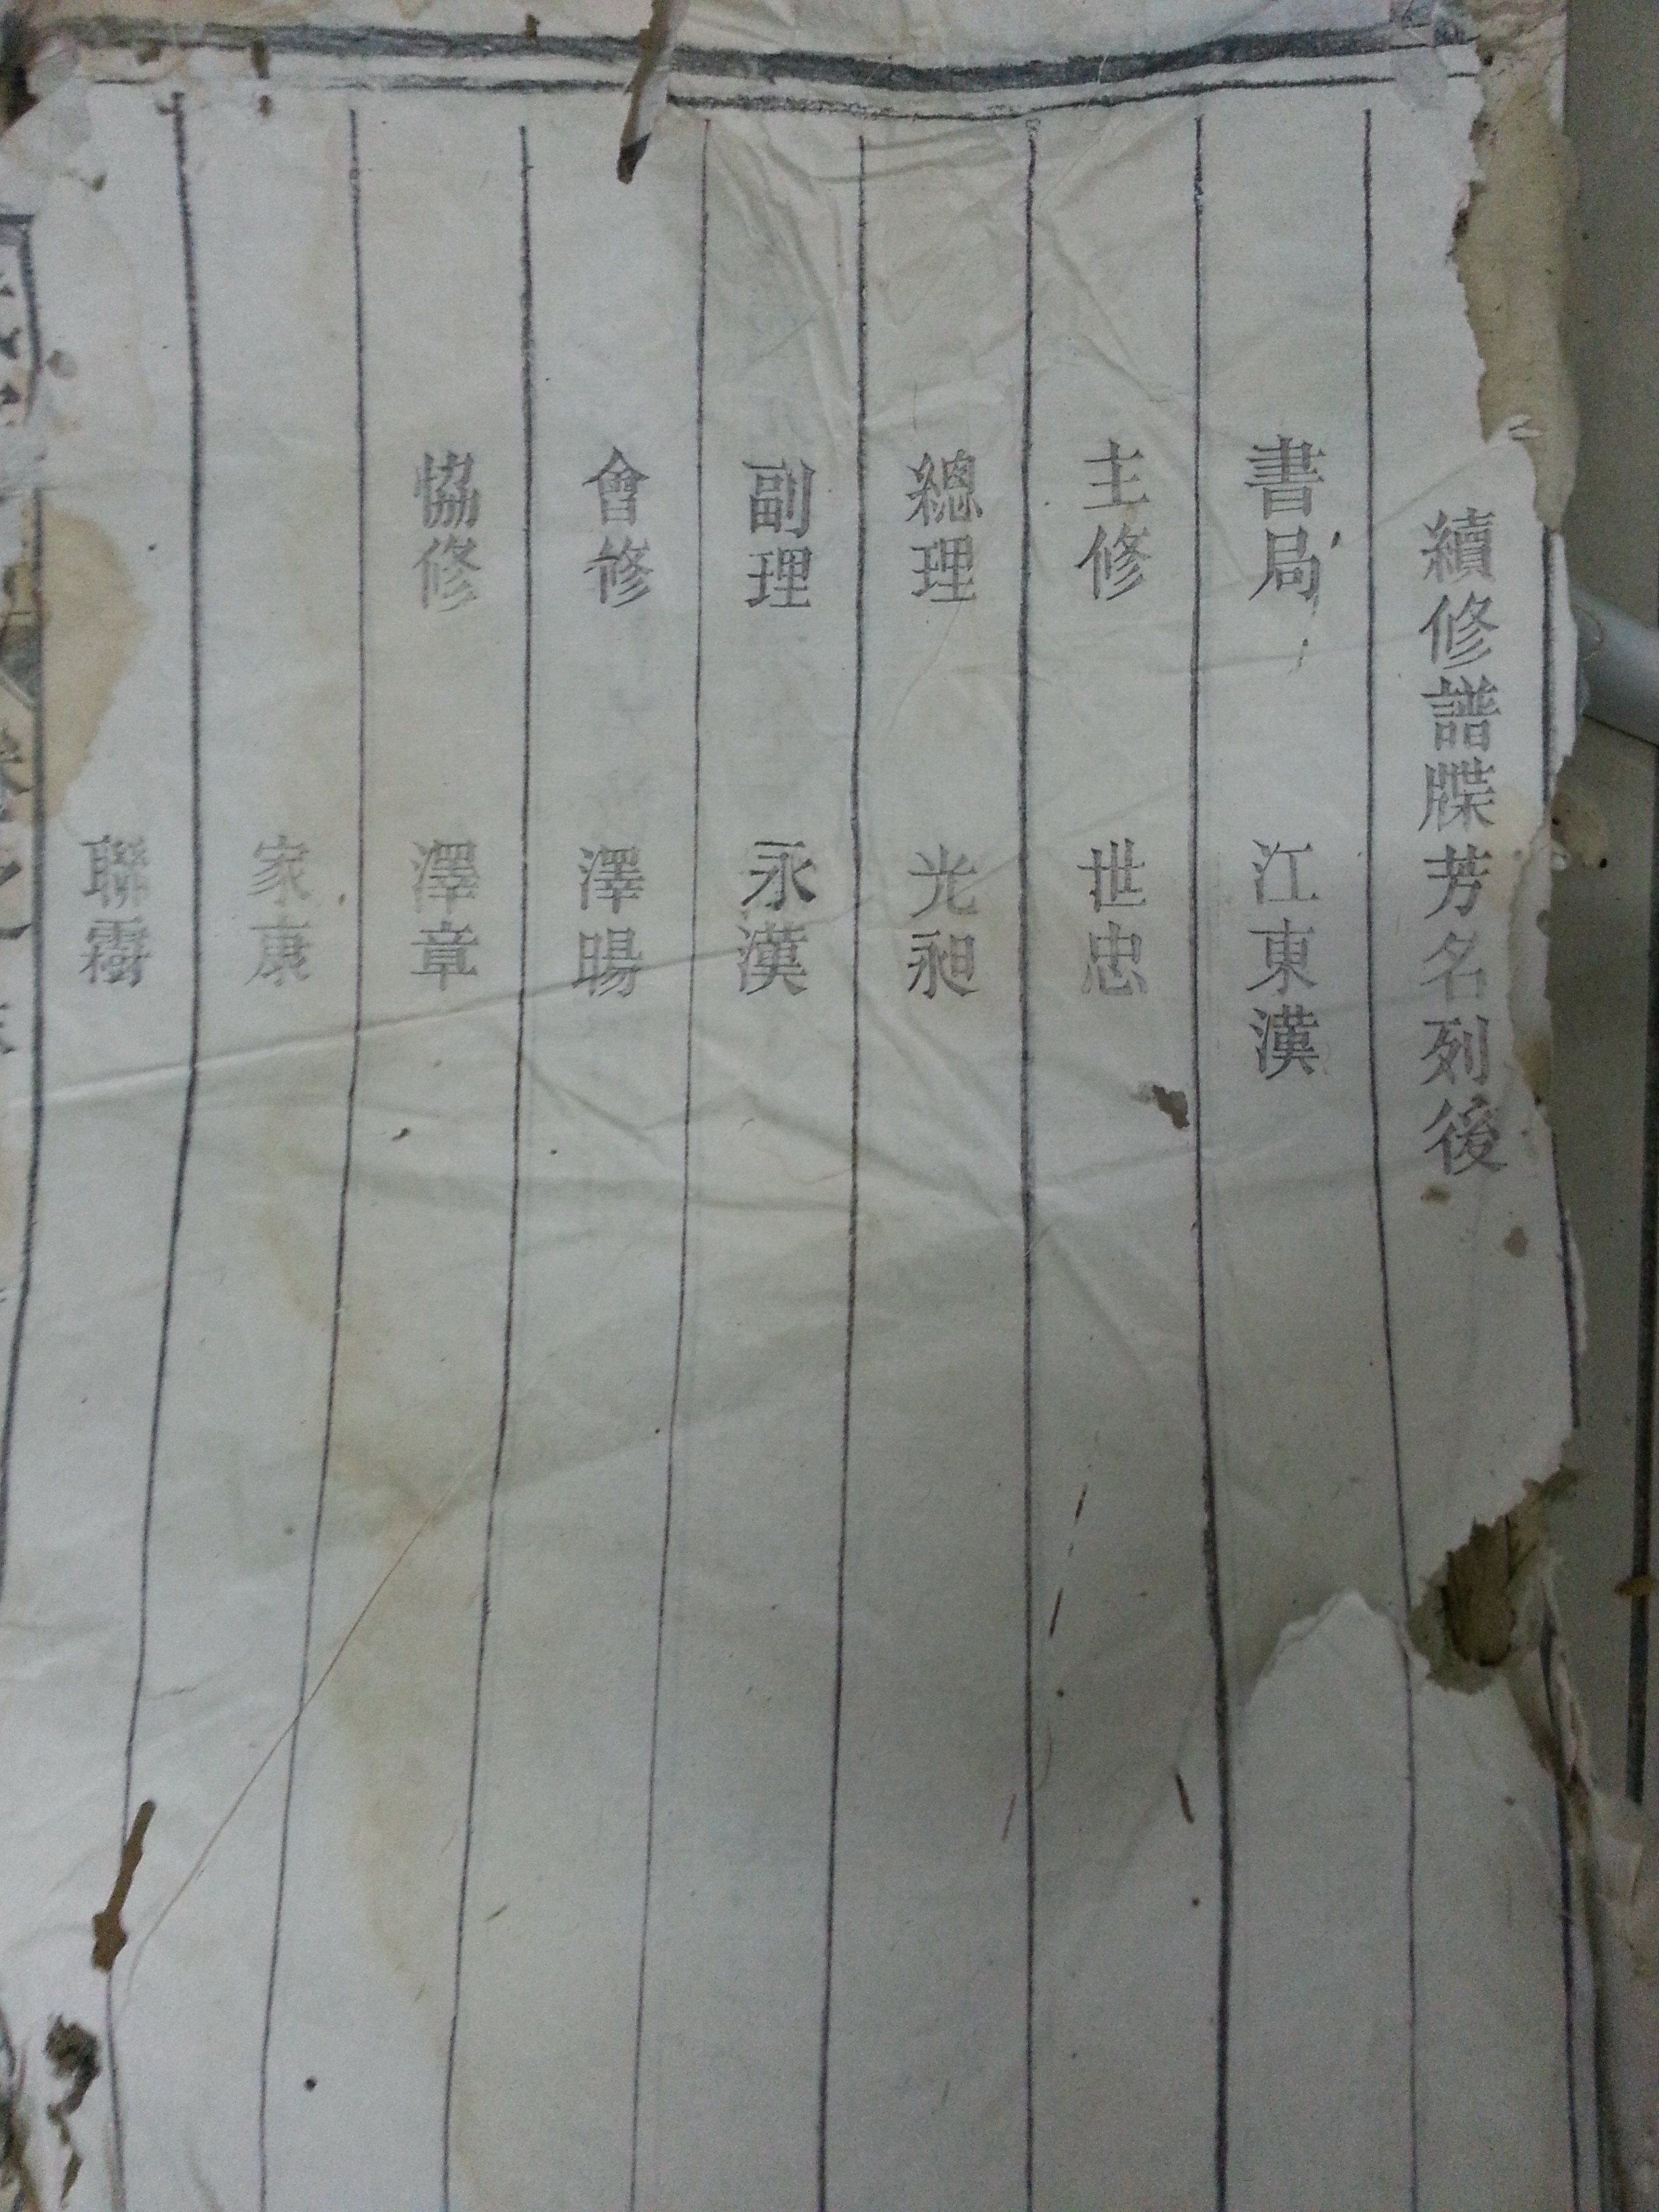 續修譜牒芳名列後
書局 江東漢
主修 世忠
總理 光昶
副理 永漢
會修 澤暘
協修 澤章
家康
聯霨